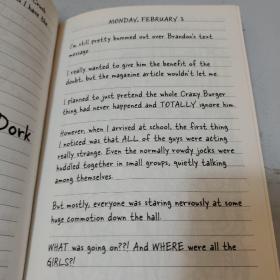 Great
n I have the
Dork
MONDAY, FEBRUARY 3
I'm still pretty bummed out over Brandon's text
message.
I really wanted to give him the benefit of the
doubt, but the magazine article wouldn't let me.
I planned to just pretend the whole Crazy Burger
thing had never happened and TOTALLY ignore him.
However, when I arrived at school, the first thing
I noticed was that ALL of the guys were acting
really strange. Even the normally rowdy jocks were
huddled together in small groups, quietly talking
among themselves.
But mostly, everyone was staring nervously at some
huge commotion down the hall.
WHAT was going on??! And WHERE were all the
GIRLS?!